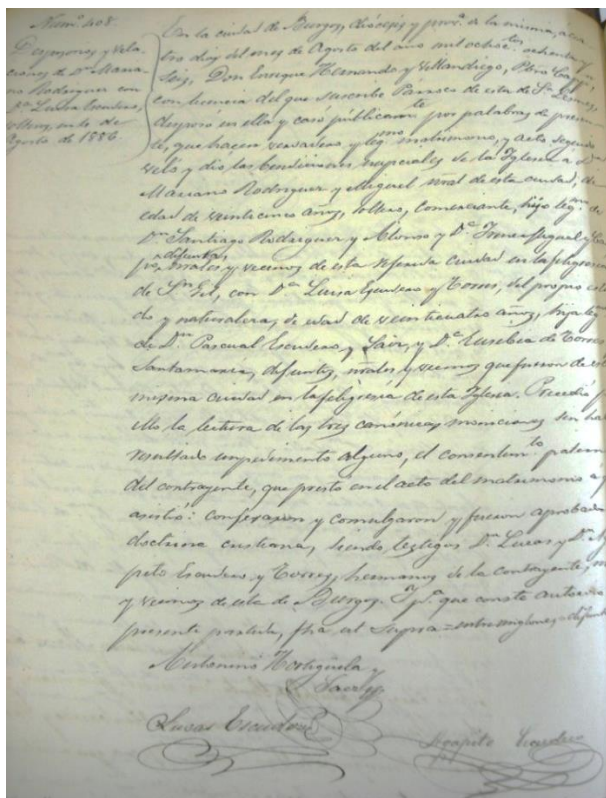 Num.º 408.
Desposorios y vela-
ciones de Dn. Maria-
no Rodriguez con
Dª Luisa Escudero,
solteros, en 4 de
Agosto de 1886.
En la ciudad de Burgos, diócesis y prov.ª de la misma, a cua
tro dias del mes de Agosto del año mil ochoc.tos ochenta y
seis, Don Enrique Hernando y Villandiego, Pbro
con licencia del que suscribe Párroco de esta de Sn. Lesmes
desposó en ella y casó públicam.te por palabras de presen
te, que hacen verdadero y leg.mo matrimonio, y acto seguido
veló y dió las bendiciones nupciales de la Iglesia a Dn.
Mariano Rodriguez y Miguel, nral. de esta ciudad, de
edad de veinticinco años, soltero, comerciante, hijo leg.mo de
Dn. Santiago Rodriguez y Alonso y Dª Miguel y
difunta,
nrales. y vecinos de esta referida ciudad en la feligresia
de Sn. Gil, con Dª Luisa Escudero y Torres, del propio esta
do y naturaleza, de edad de veinticuatro años, hija
de Dn. Pascual Escudero y Saiz, y Dª Eusebia de Torres
Santamaria, difuntos, nrales. y vecinos que fueron de esta
misma ciudad en la feligresia de esta Iglesia. Precedió p
ello la lectura de las tres canónicas moniciones sin hab
resultado impedimento alguno, el consentim.to patern
del contrayente, que prestó en el acto del matrimonio a q
asistió: confesaron y comulgaron y fueron aprobados
doctrina cristiana, siendo testigos Dn. Lucas y Dn. A
gapito Escudero y Torres, hermanos de la contrayente, n
y vecinos de esta de Burgos. Y pª. que conste autorizo
presente partida, fha ut supra = entre renglones = difunta
Antonino Hortigüela y
Saiz
Lucas Escudero
Agapito Escudero